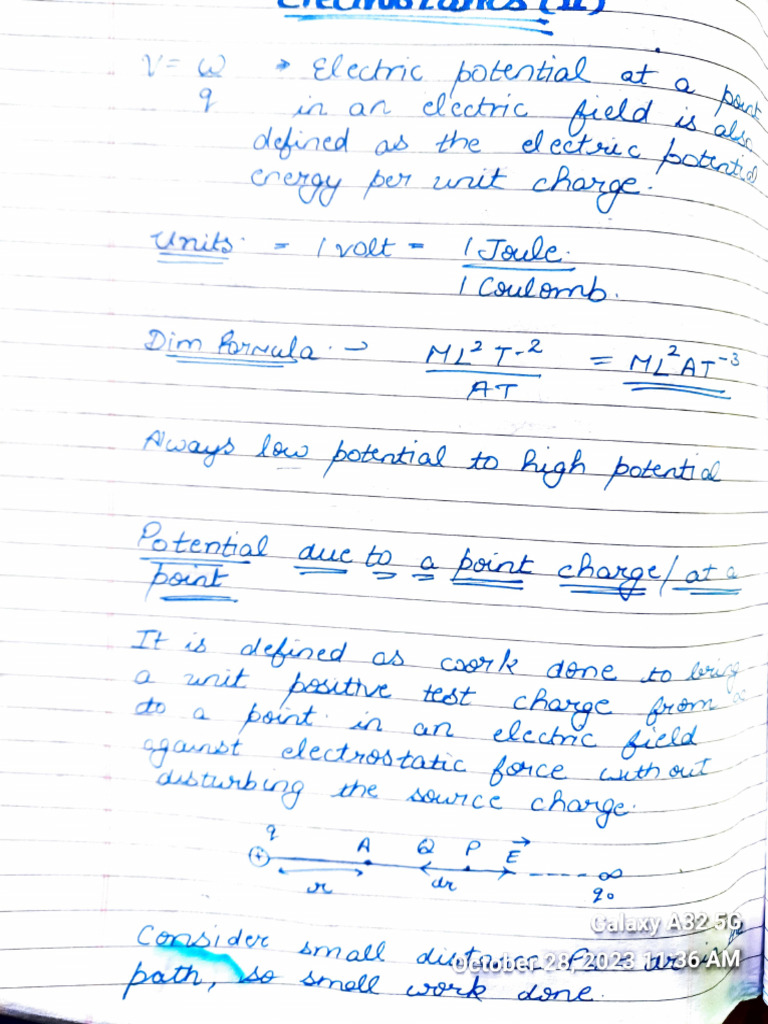 Electrostatics (II)
V = W → Electric potential at a point
q in an electric field is also
defined as the electric potential
energy per unit charge.
Units: = 1 volt = 1 Joule.
1 Coulomb.
Dim Formula → ML² T-² = ML²AT⁻³
AT
Always low potential to high potential
Potential due to a point charge/at a
point
It is defined as work done to bring
a unit positive test charge from ∞
to a point in an electric field
against electrostatic force without
disturbing the source charge.
q A Q P E→
+ r dr ∞
q₀
Consider small distance
path, so small work done.
Galaxy A32 5G
October 28, 2023 11:36 AM